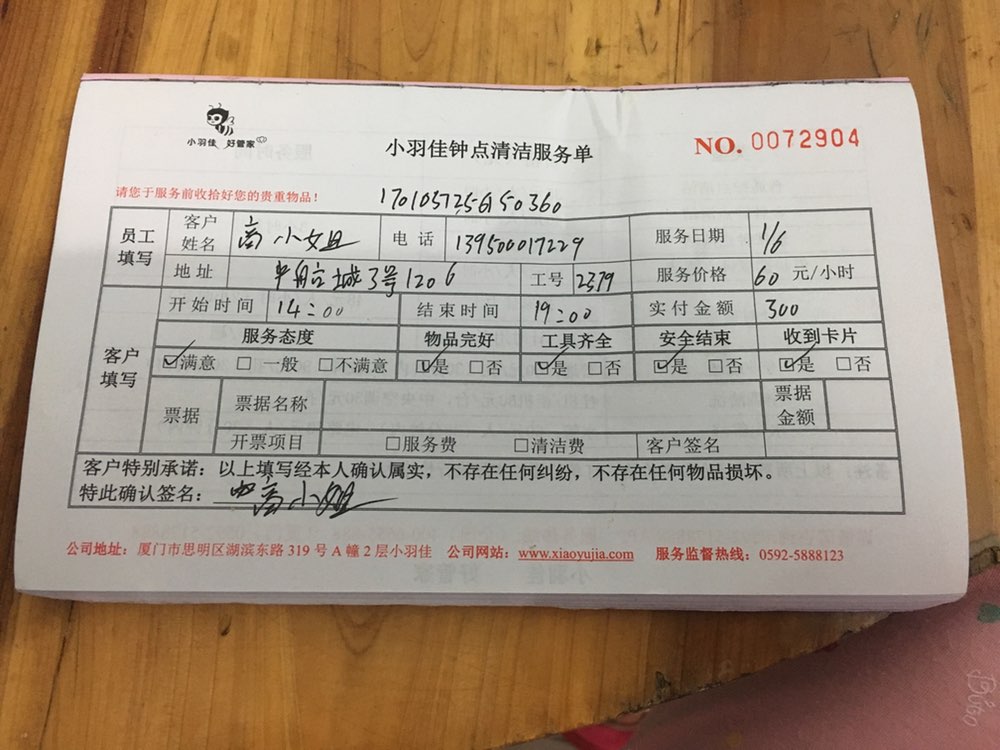 小羽佳 好管家
小羽佳钟点清洁服务单
NO. 0072904
请您于服务前收拾好您的贵重物品！
员工填写 客户姓名 高小姐 电话 139500017229 服务日期 1/6
地址 中航立城3号1206 工号 2379 服务价格 60 元/小时
客户填写 开始时间 14:00 结束时间 19:00 实付金额 300
服务态度 物品完好 工具齐全 安全结束 收到卡片
☑满意 □一般 □不满意 ☑是 □否 ☑是 □否 ☑是 □否 ☑是 □否
票据 票据名称 票据金额
开票项目 □服务费 □清洁费 客户签名
客户特别承诺：以上填写经本人确认属实，不存在任何纠纷，不存在任何物品损坏。
特此确认签名： 高小姐
公司地址：厦门市思明区湖滨东路 319 号 A 幢 2 层小羽佳 公司网站：www.xiaoyujia.com 服务监督热线：0592-5888123